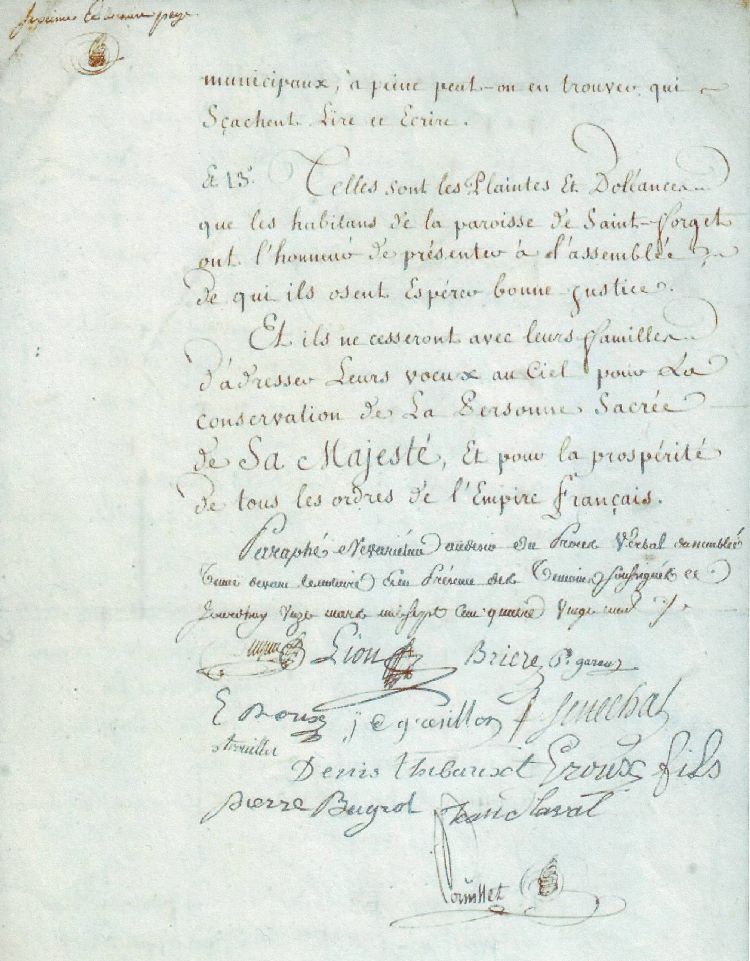 municipaux, à peine peut-on en trouver qui
Sçachent Lire et Ecrire.
& 13°. Telles sont les Plaintes Et Dolléances
que les habitans de la paroisse de Saint-forget
ont l'honneur de présenter à l'assemblée
de qui ils osent Espérer bonne justice.
Et ils ne cesseront avec leurs familles
d'adresser Leurs voeux au Ciel pour La
conservation de La Personne Sacrée
de Sa Majesté, Et pour la prospérité
de tous les ordres de l'Empire Français.
Paraphé Nevarietur au desir du Procès Verbal d'assemblée
tenue devant le notaire En Présence des Temoins soussignés ce
jourd'huy Vingt mars mil sept Cent quatre Vingt neuf
Lion Briere P. garnot
E Doux senechal
Denis thibault Groux fils
pierre Bugrot Jean Claval